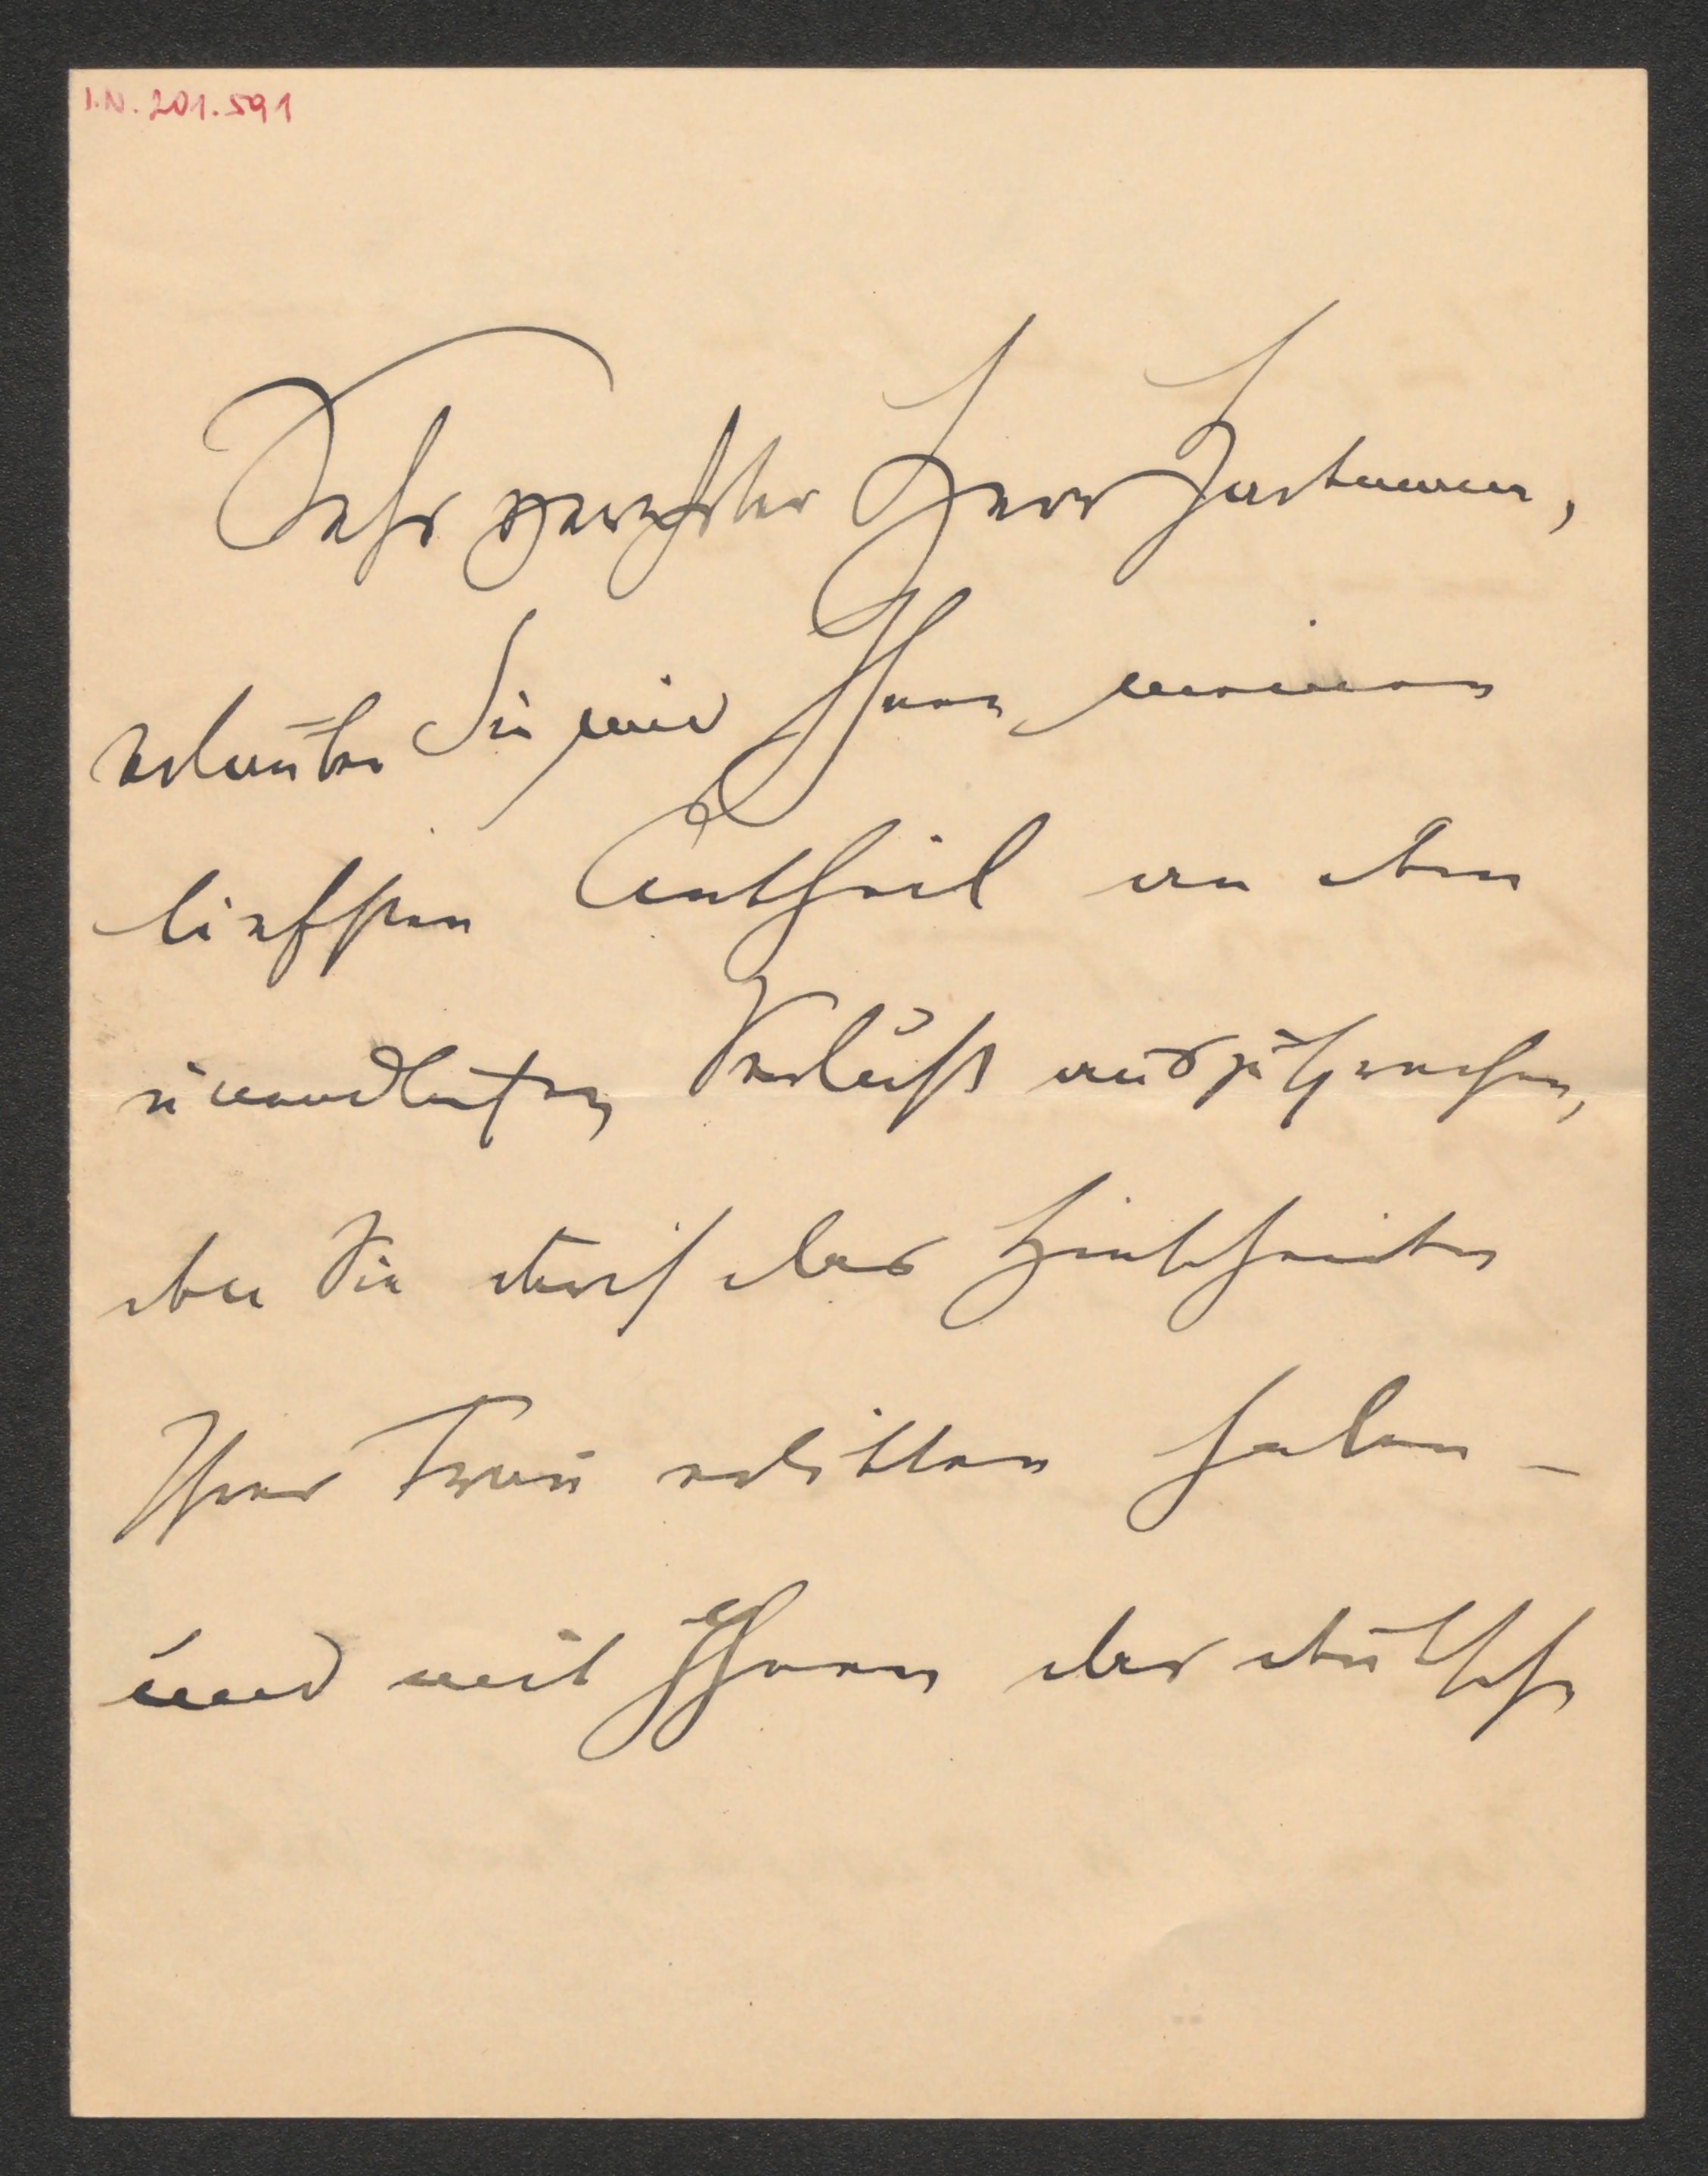 I.N. 201.591
Sehr geehrter Herr Hartmann,
erlauben Sie mir Ihnen meinen
tiefsten Antheil an dem
unendlichen Verlust auszusprechen,
den Sie durch das Hinscheiden
Ihrer Frau erlitten haben –
und mit Ihnen das deutsche